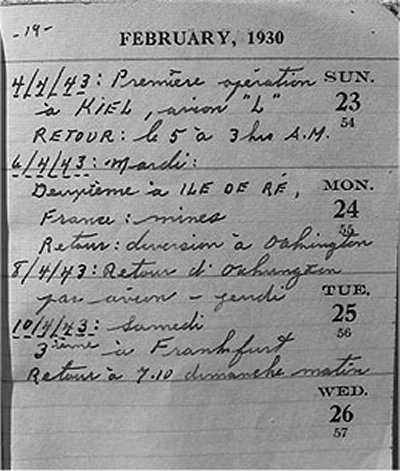 -19-
FEBRUARY, 1930
4/4/43: Première opération SUN.
à KIEL, avion "L" 23
54
RETOUR: le 5 à 3 hrs A.M.
6/4/43: Mardi:
Deuxième à ILE DE RÉ, MON.
France: mines 24
55
Retour: diversion à Oakington
8/4/43: Retour d'Oakington
par avion - jeudi TUE.
25
10/4/43: Samedi 56
3ième à Frankfurt
Retour à 7.10 dimanche matin
WED.
26
57